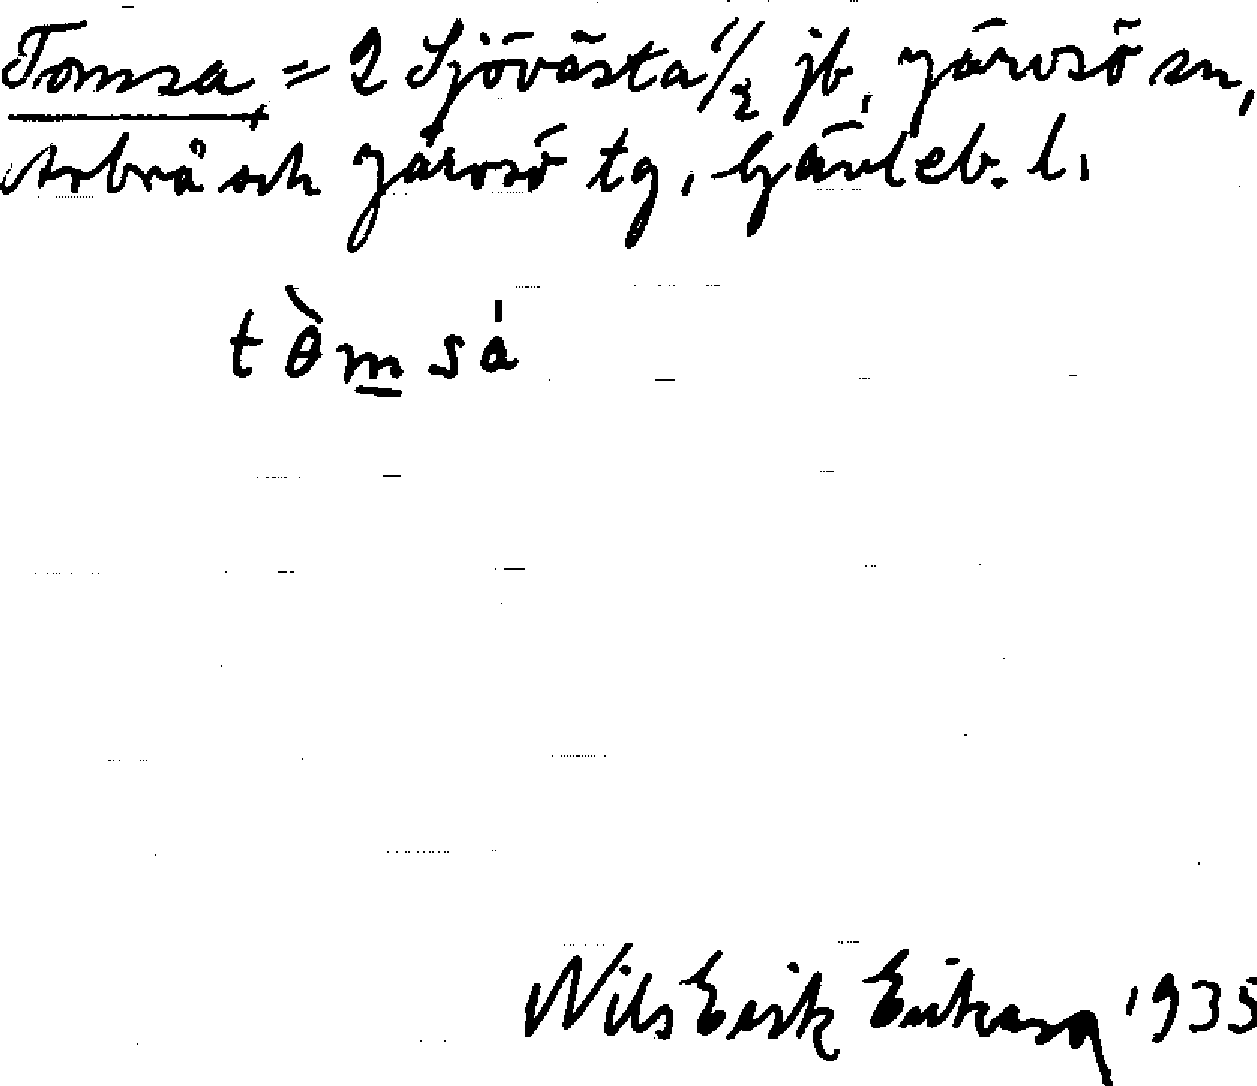 Tomsa, = 2 Sjövästa 1/2 jb, Järvsö sn,
Arbrå och Järvsö tg, Gävleb. l.
tòmsá
Nils Erik Eriksson 1935